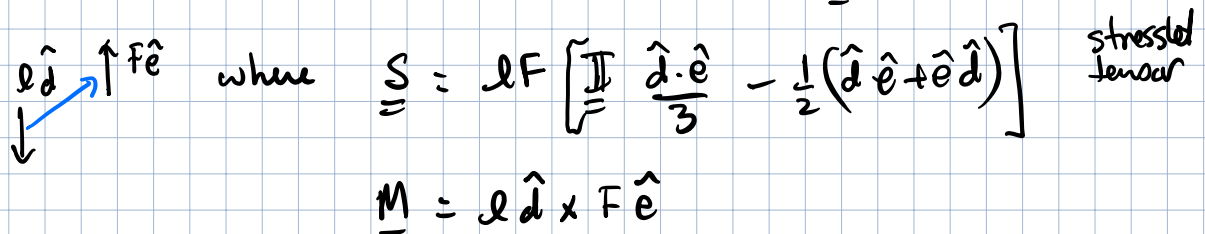 ℓd̂ Fê where S = ℓF [ I d̂·ê/3 − 1/2 (d̂ ê + ê d̂) ] stresslet
tensor
M = ℓ d̂ × F ê